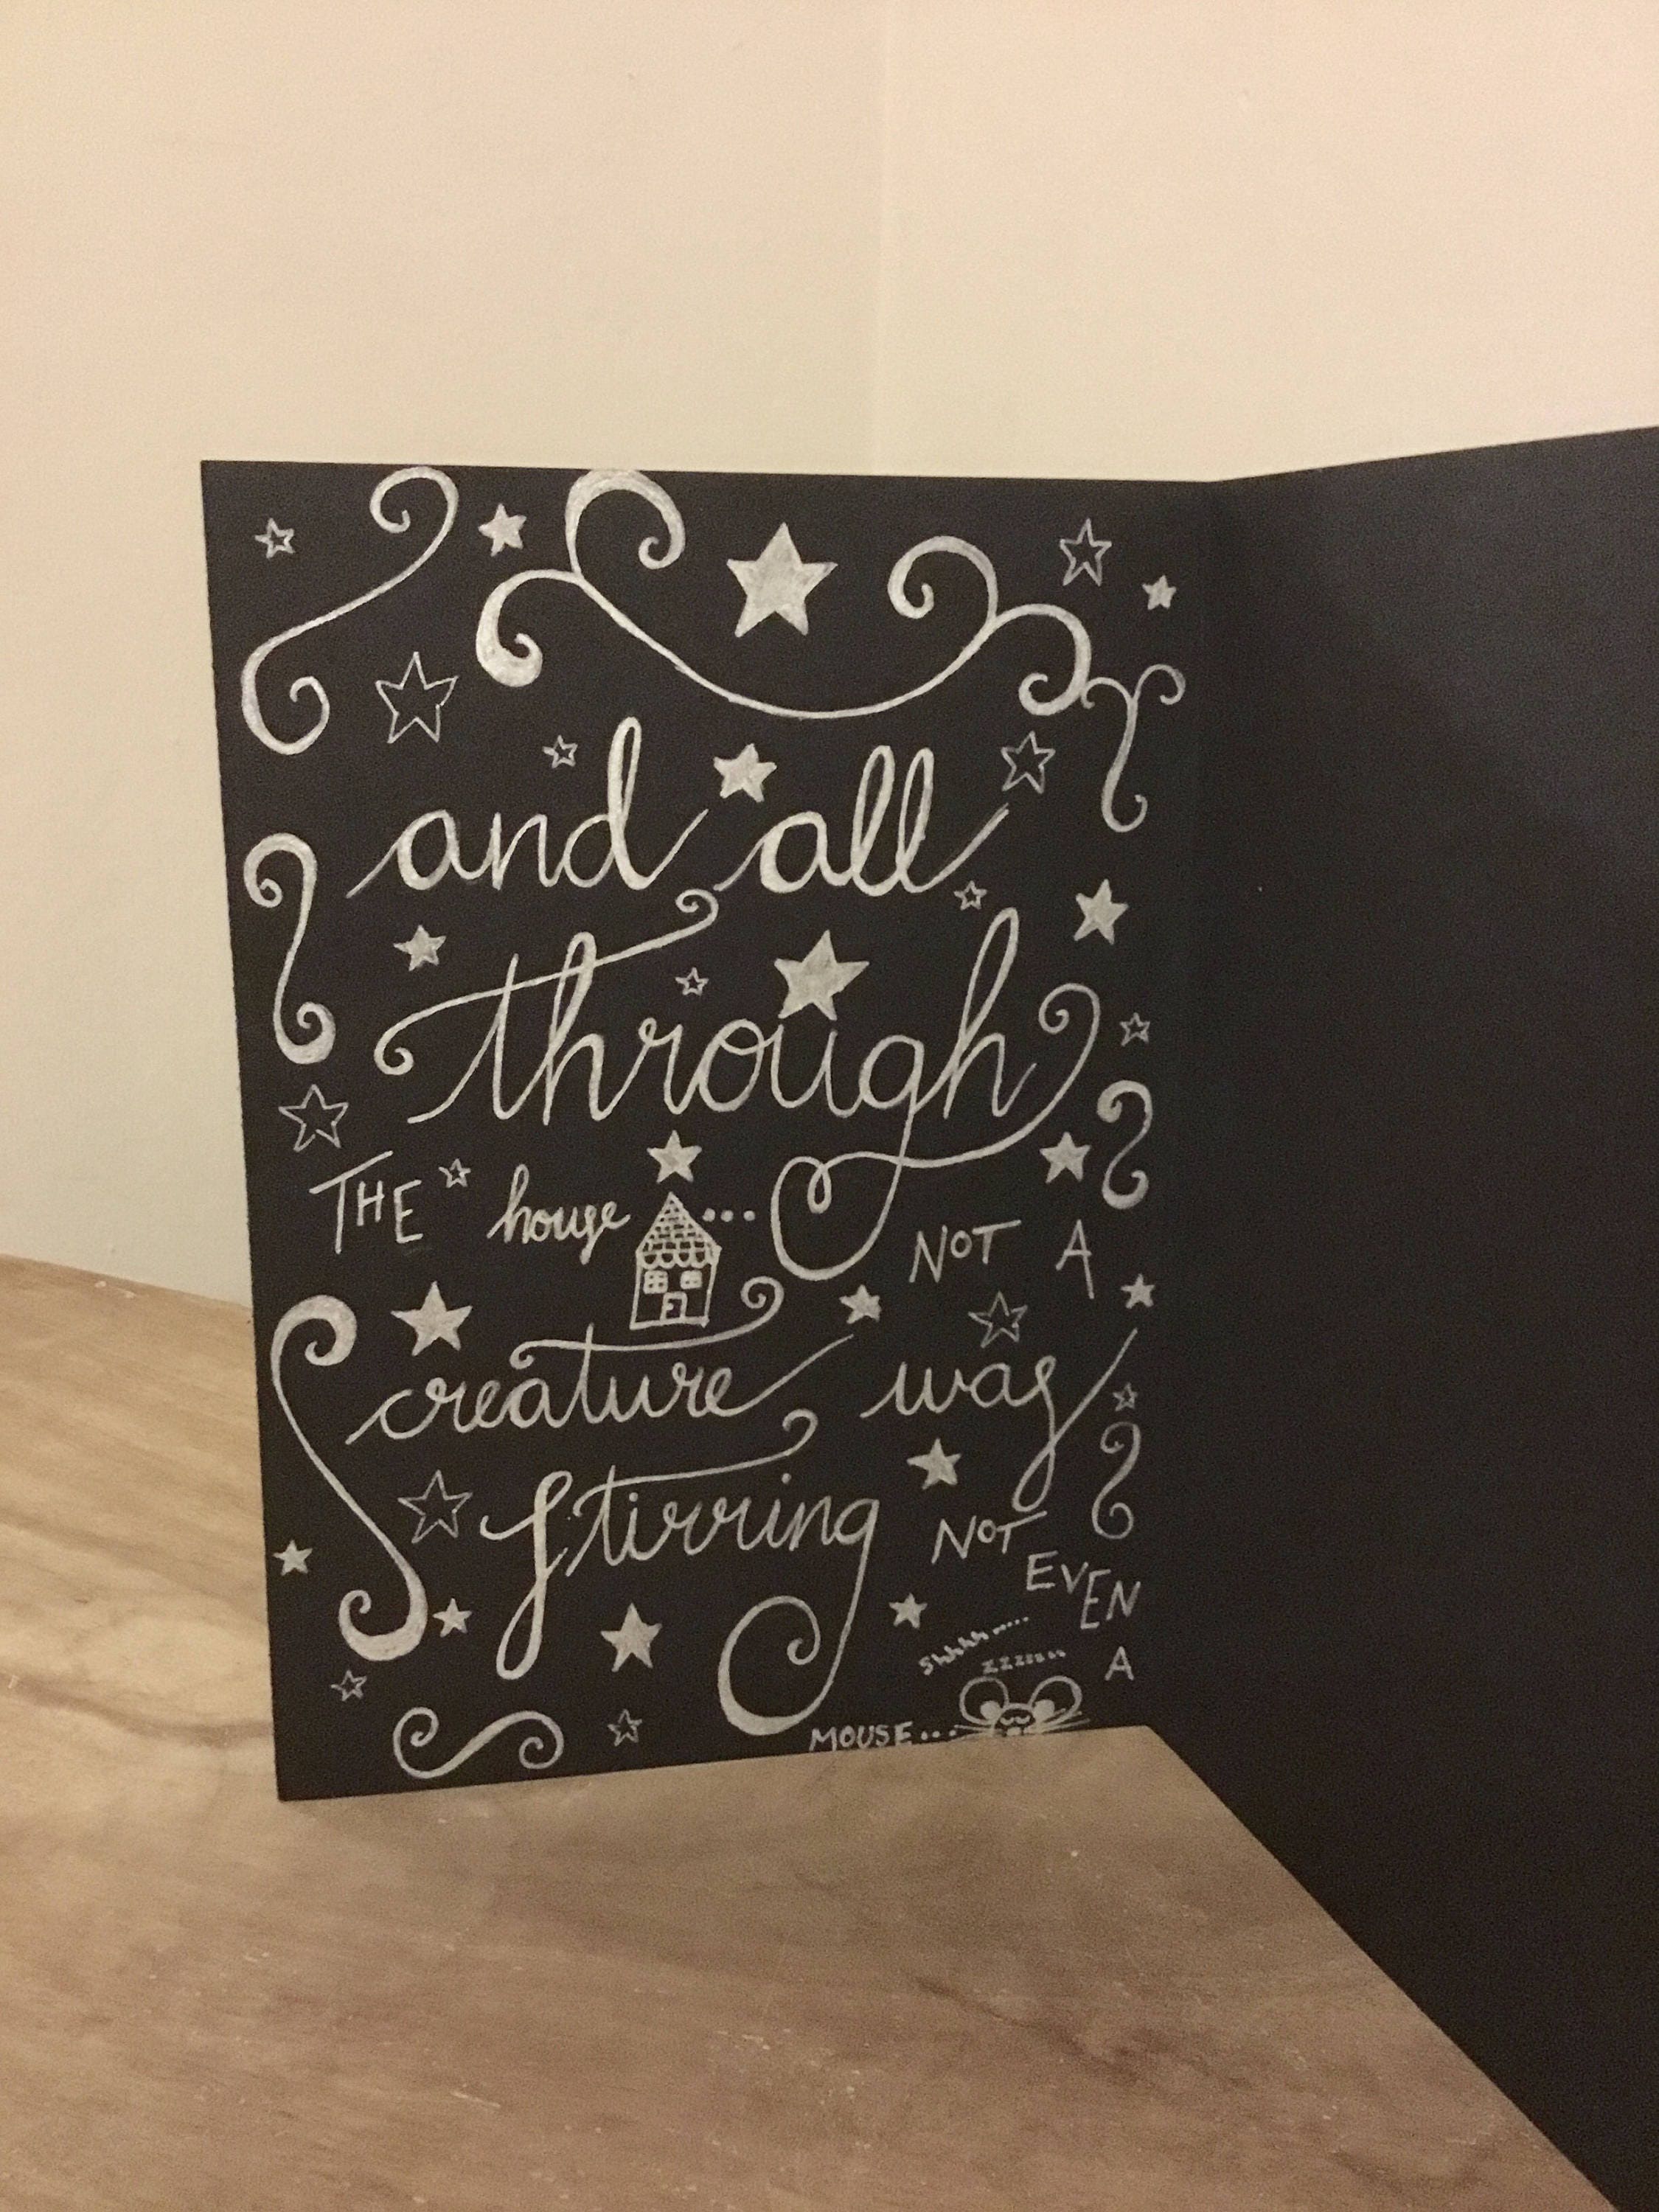 and all
through
THE house... NOT A
creature was
stirring NOT
EVEN
A
shhhh.....
zzzzzzz
MOUSE...